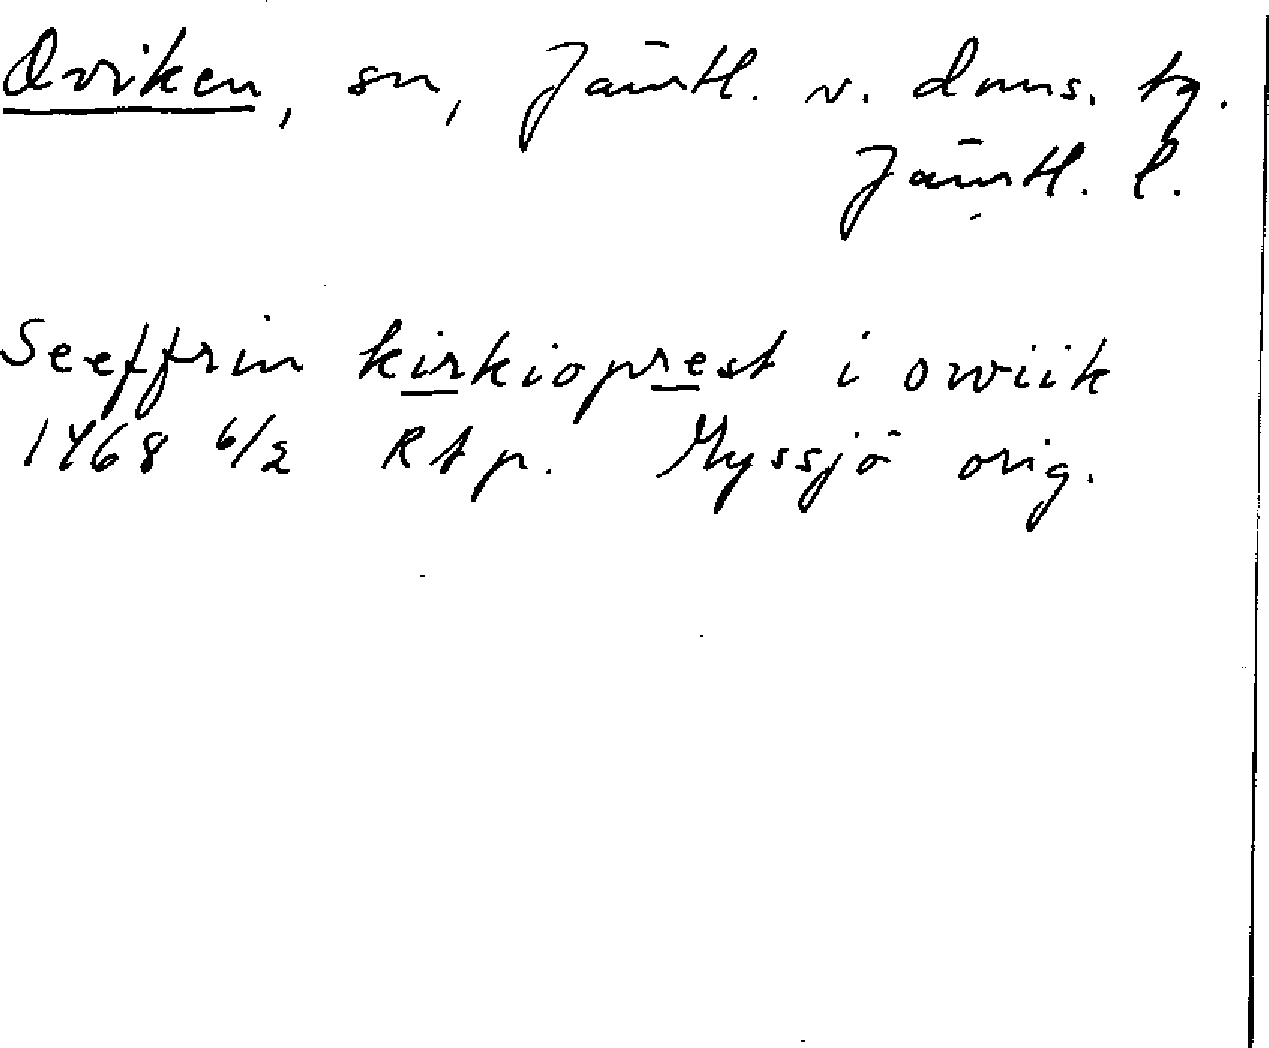 Oviken, sn, Jämtl. v. doms. tg.
Jämtl. l.
Seeffrin kirkioprest i owiik
1468 6/2 Rtp. Myssjö orig.